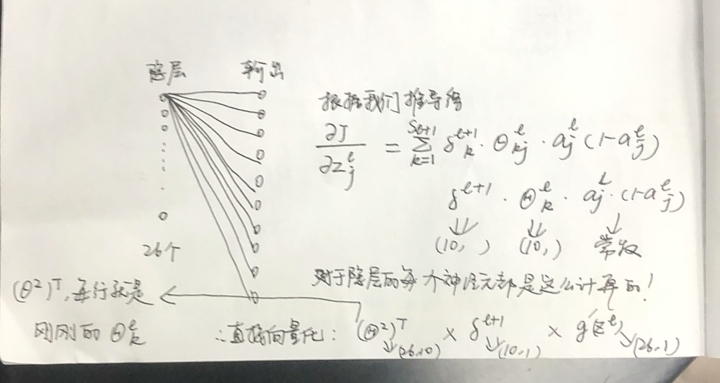 隐层 输出
根据我们推导得
∂J/∂Z_j^l = Σ_{k=1}^{S_{l+1}} δ_k^{l+1} · Θ_{kj}^l · a_j^l (1-a_j^l)
δ^{l+1} · Θ_k^l · a_j^l · (1-a_j^l)
(10, ) (10, ) 常数
26个
对于隐层的每个神经元都是这么计算的!
(Θ²)^T, 每行就是
刚刚的 Θ_k^l
∴直接向量化: (Θ²)^T × δ^{l+1} × g'(z^l)
(26,10) (10,1) (26,1)